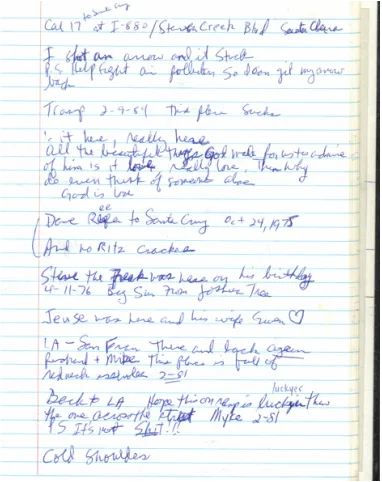 to Santa Cruz
Cal 17 at I-880/Stevens Creek Blvd Santa Clara
I shot an arrow and it stuck
P.S. Help fight air pollution so I can get my arrow
back
Tramp 2-9-84 This place Sucks
is it here, really here
All the beautiful things God made for us to admire
of him is it love really love, then why
do even think of someone else
God is love
Dave Ree to Santa Cruz Oct 24, 1975
And no Ritz Crackers
Steve the Freak was here on his birthday
4-11-76 Big Sur from Joshua Tree
Jesse was here and his wife Gwen ♡
LA - San Fran There and back again
+ Mike This place is full of
redneck 2-81
luckyer
Back to LA Hope this on ramp is luckyier than
the one across the street Myke 2-81
PS It's not Shit!!!
Cold Shoulder